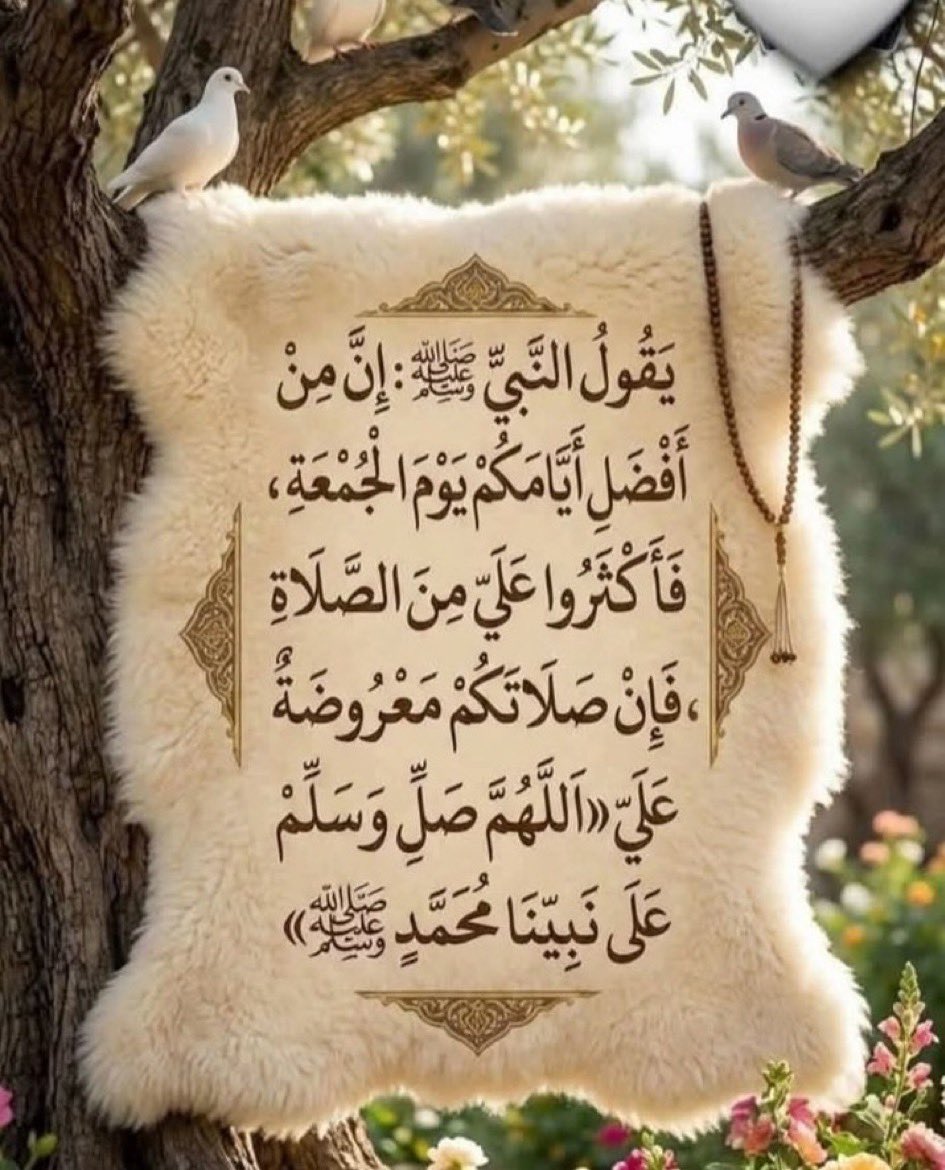 يَقُولُ النَّبِيّ ﷺ : إِنَّ مِنْ
أَفْضَلِ أَيَّامَكُمْ يَوْمَ الْجُمْعَةِ،
فَأَكْثَرُوا عَلَيّ مِنَ الصَّلَاةِ
،فَإِنْ صَلَاتَكُمْ مَعْرُوضَةٌ
عَلَيّ «اَللَّهُمَّ صَلِّ وَسَلِّمْ
عَلَى نَبِيّنَا مُحَمَّدٍ ﷺ»